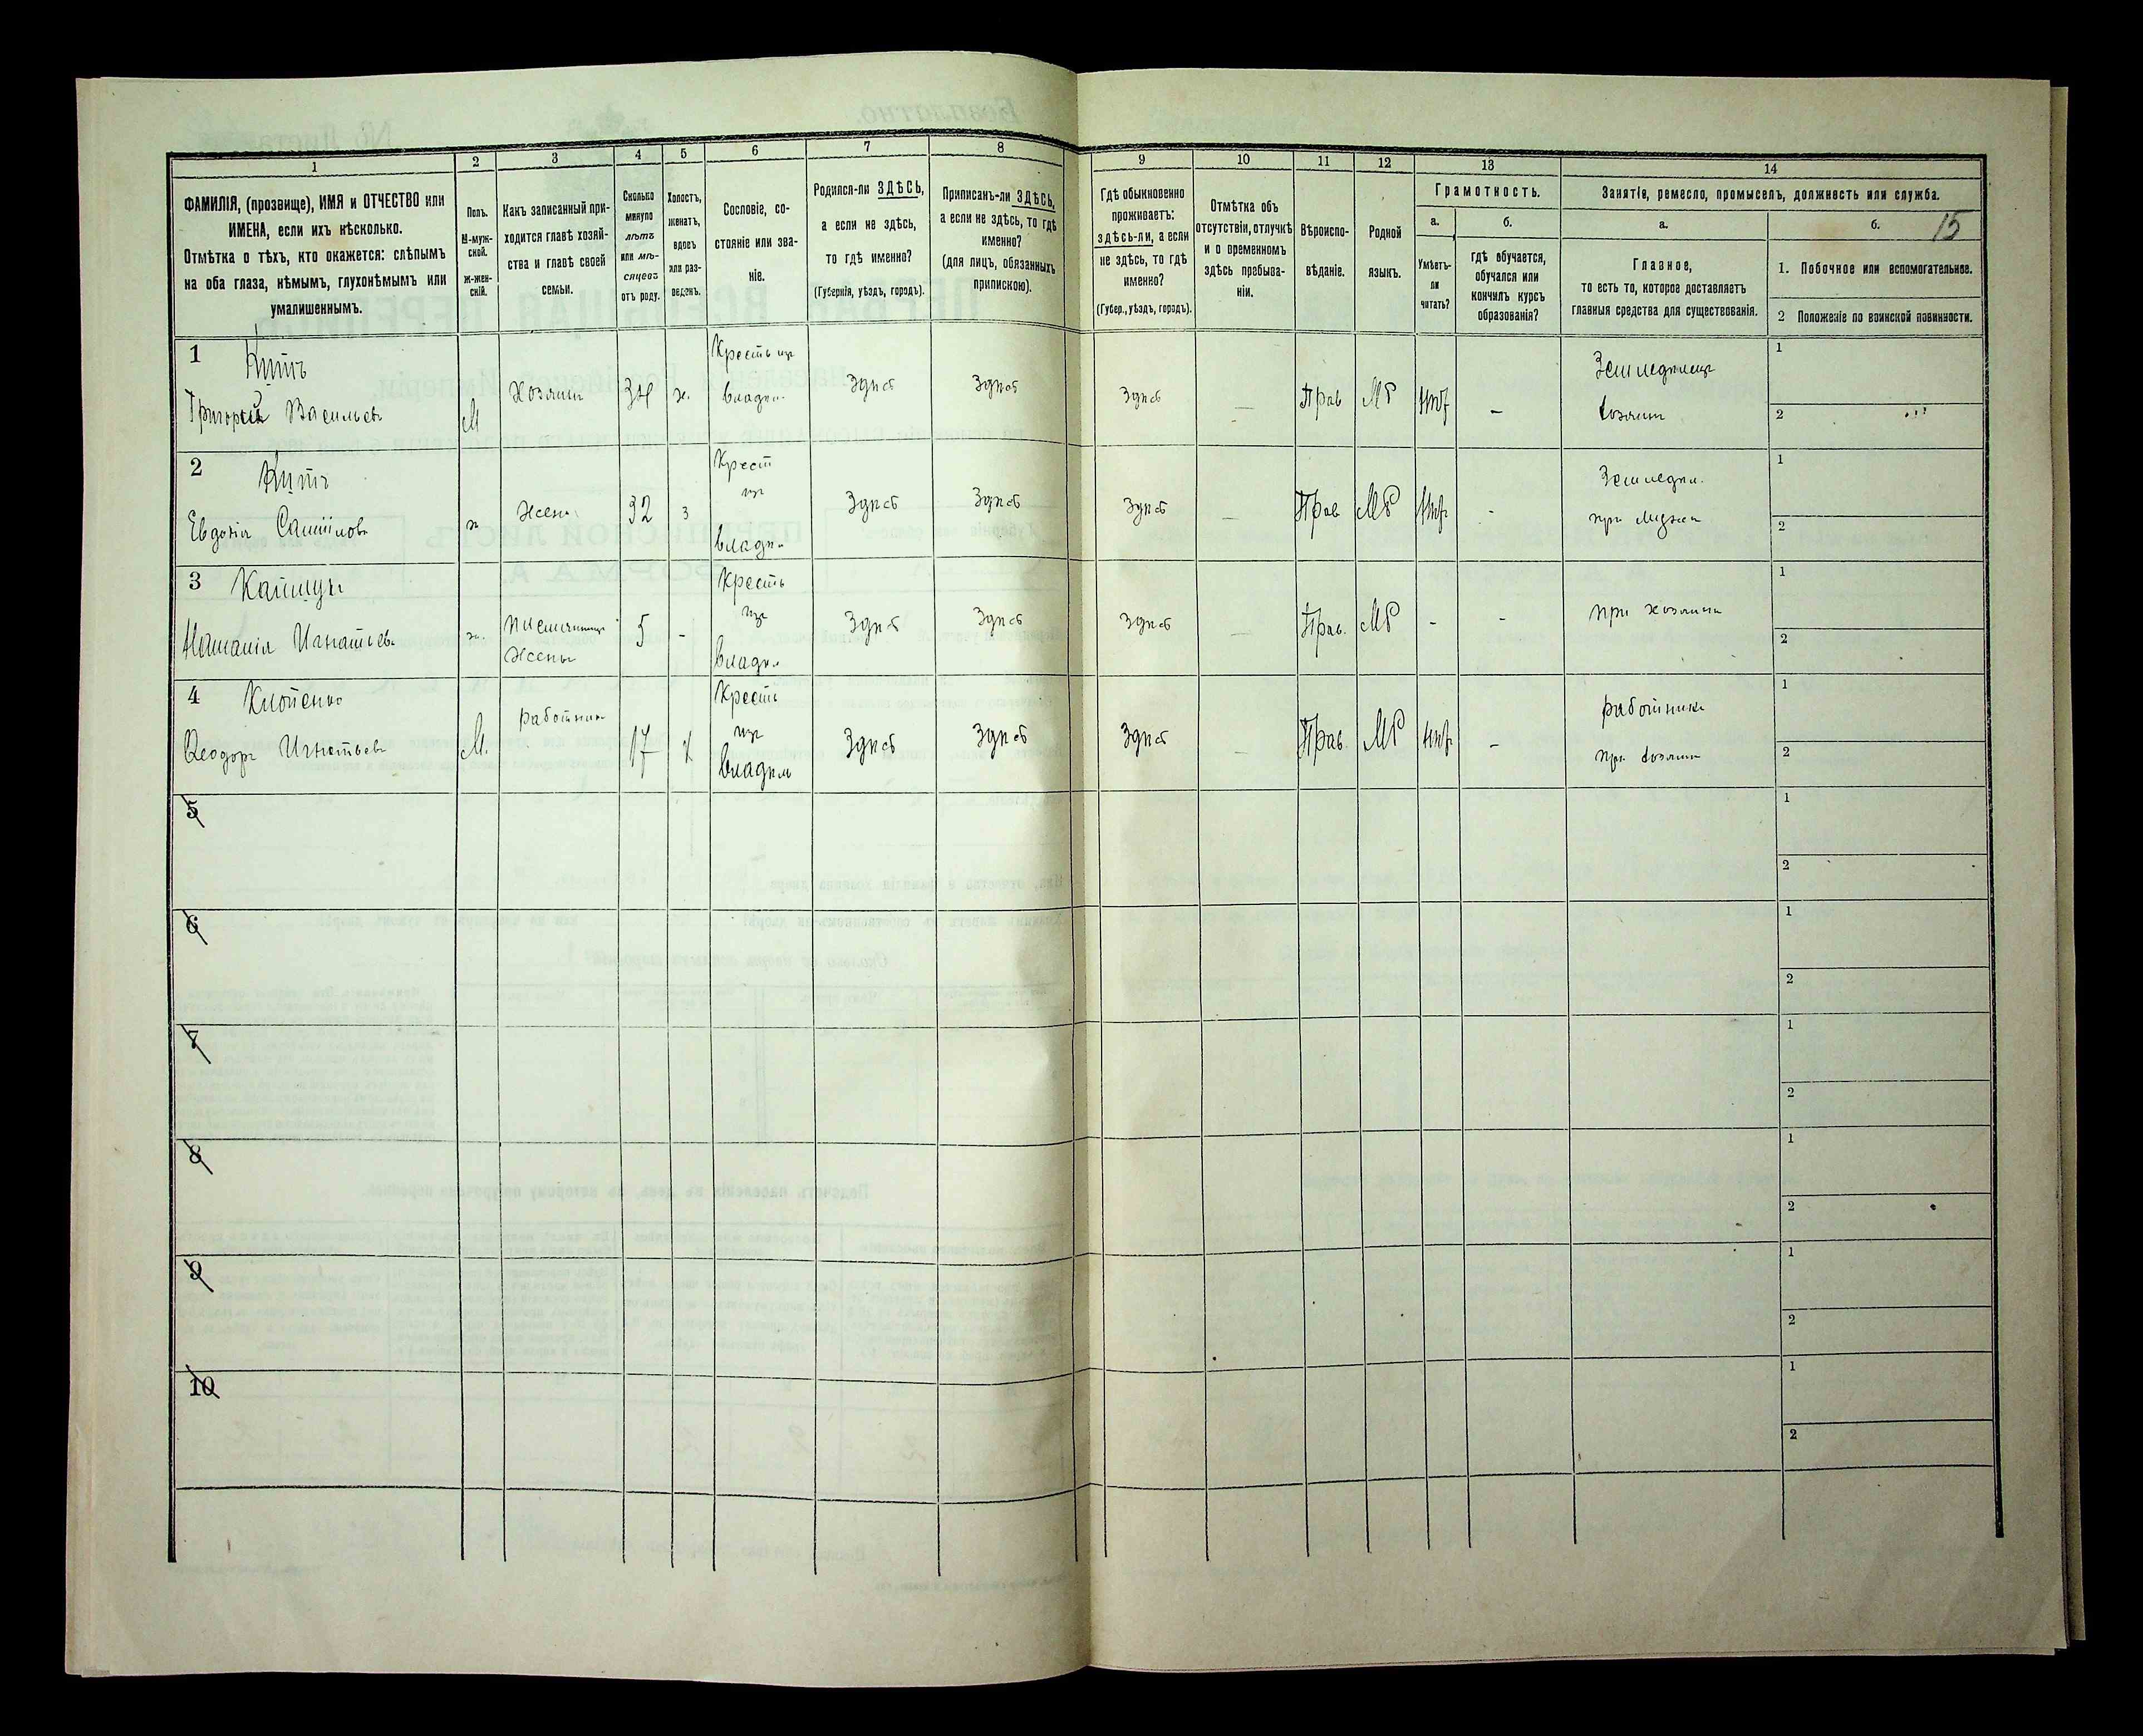 1 2 3 4 5 6 7 8 9 10 11 12 13 14
ФАМИЛІЯ, (прозвище), ИМЯ и ОТЧЕСТВО или
ИМЕНА, если ихъ нѣсколько.
Отмѣтка о тѣхъ, кто окажется: слѣпымъ
на оба глаза, нѣмымъ, глухонѣмымъ или
умалишеннымъ.
Полъ.
М-муж-
ской.
ж-жен-
скій.
Какъ записанный при-
ходится главѣ хозяй-
ства и главѣ своей
семьи.
Сколько
минуло
лѣтъ
или мѣ-
сяцевъ
отъ роду.
Холостъ,
женатъ,
вдовъ
или раз-
веденъ.
Сословіе, со-
стояніе или зва-
ніе.
Родился-ли ЗДѢСЬ,
а если не здѣсь,
то гдѣ именно?
(Губернія, уѣздъ, городъ).
Приписанъ-ли ЗДѢСЬ,
а если не здѣсь, то гдѣ
именно?
(для лицъ, обязанныхъ
припискою).
Гдѣ обыкновенно
проживаетъ:
здѣсь-ли, а если
не здѣсь, то гдѣ
именно?
(Губер., уѣздъ, городъ).
Отмѣтка объ
отсутствіи, отлучкѣ
и о временномъ
здѣсь пребыва-
ніи.
Вѣроиспо-
вѣданіе.
Родной
языкъ.
Грамотность.
а.
Умѣетъ-
ли
читать?
б.
гдѣ обучается,
обучался или
кончилъ курсъ
образованія?
Занятія, ремесло, промыселъ, должность или служба.
а.
Главное,
то есть то, которое доставляетъ
главныя средства для существованія.
б. 15
1. Побочное или вспомогательное.
2 Положеніе по воинской повинности.
1
Григорій Васильевъ
М
Хозяинъ
34
ж.
Крестъ из
владѣл
Здѣсь
Здѣсь
Здѣсь
—
Прав
МР
нѣт
–
Земледѣлецъ
хозяинъ
1
2
2
Евдокія
ж
Жена
32
з
Крест
из
владѣл
Здѣсь
Здѣсь
Здѣсь
—
Прав
МР
нѣт
-
Земледѣл.
при мужѣ
1
2
3
Игнатьев
ж.
Жены
5
-
Кресть
из
владѣл
Здѣсь
Здѣсь
Здѣсь
—
Прав.
МР
-
-
при хозяинѣ
1
2
4
Ѳеодоръ Игнатьевъ
М.
работник
17
х
Кресть
из
владѣль
Здѣсь
Здѣсь
Здѣсь
—
Прав.
МР
нѣт
–
работникъ
при хозяинѣ
1
2
5
1
2
6
1
2
7
1
2
8
1
2
9
1
2
10
1
2